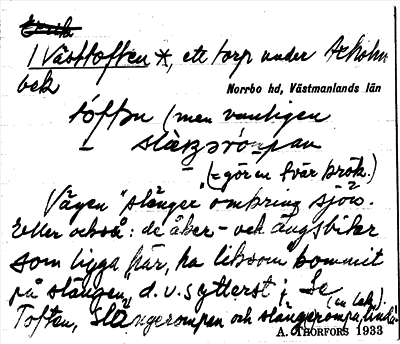 Västtoften *, ett torp under
bek
Norrbo hd, Västmanlands län
tófftn (men vanligen
(= gör en tvär krök.)
Vägen "slänger" omkring sjön.
Eller också: de åker- och ängsbitar
som ligga här, ha liksom kommit
på slängen, d.v.s ytterst; Se
Toften, Slängerompan och slängerompa
A. THORFORS 1933